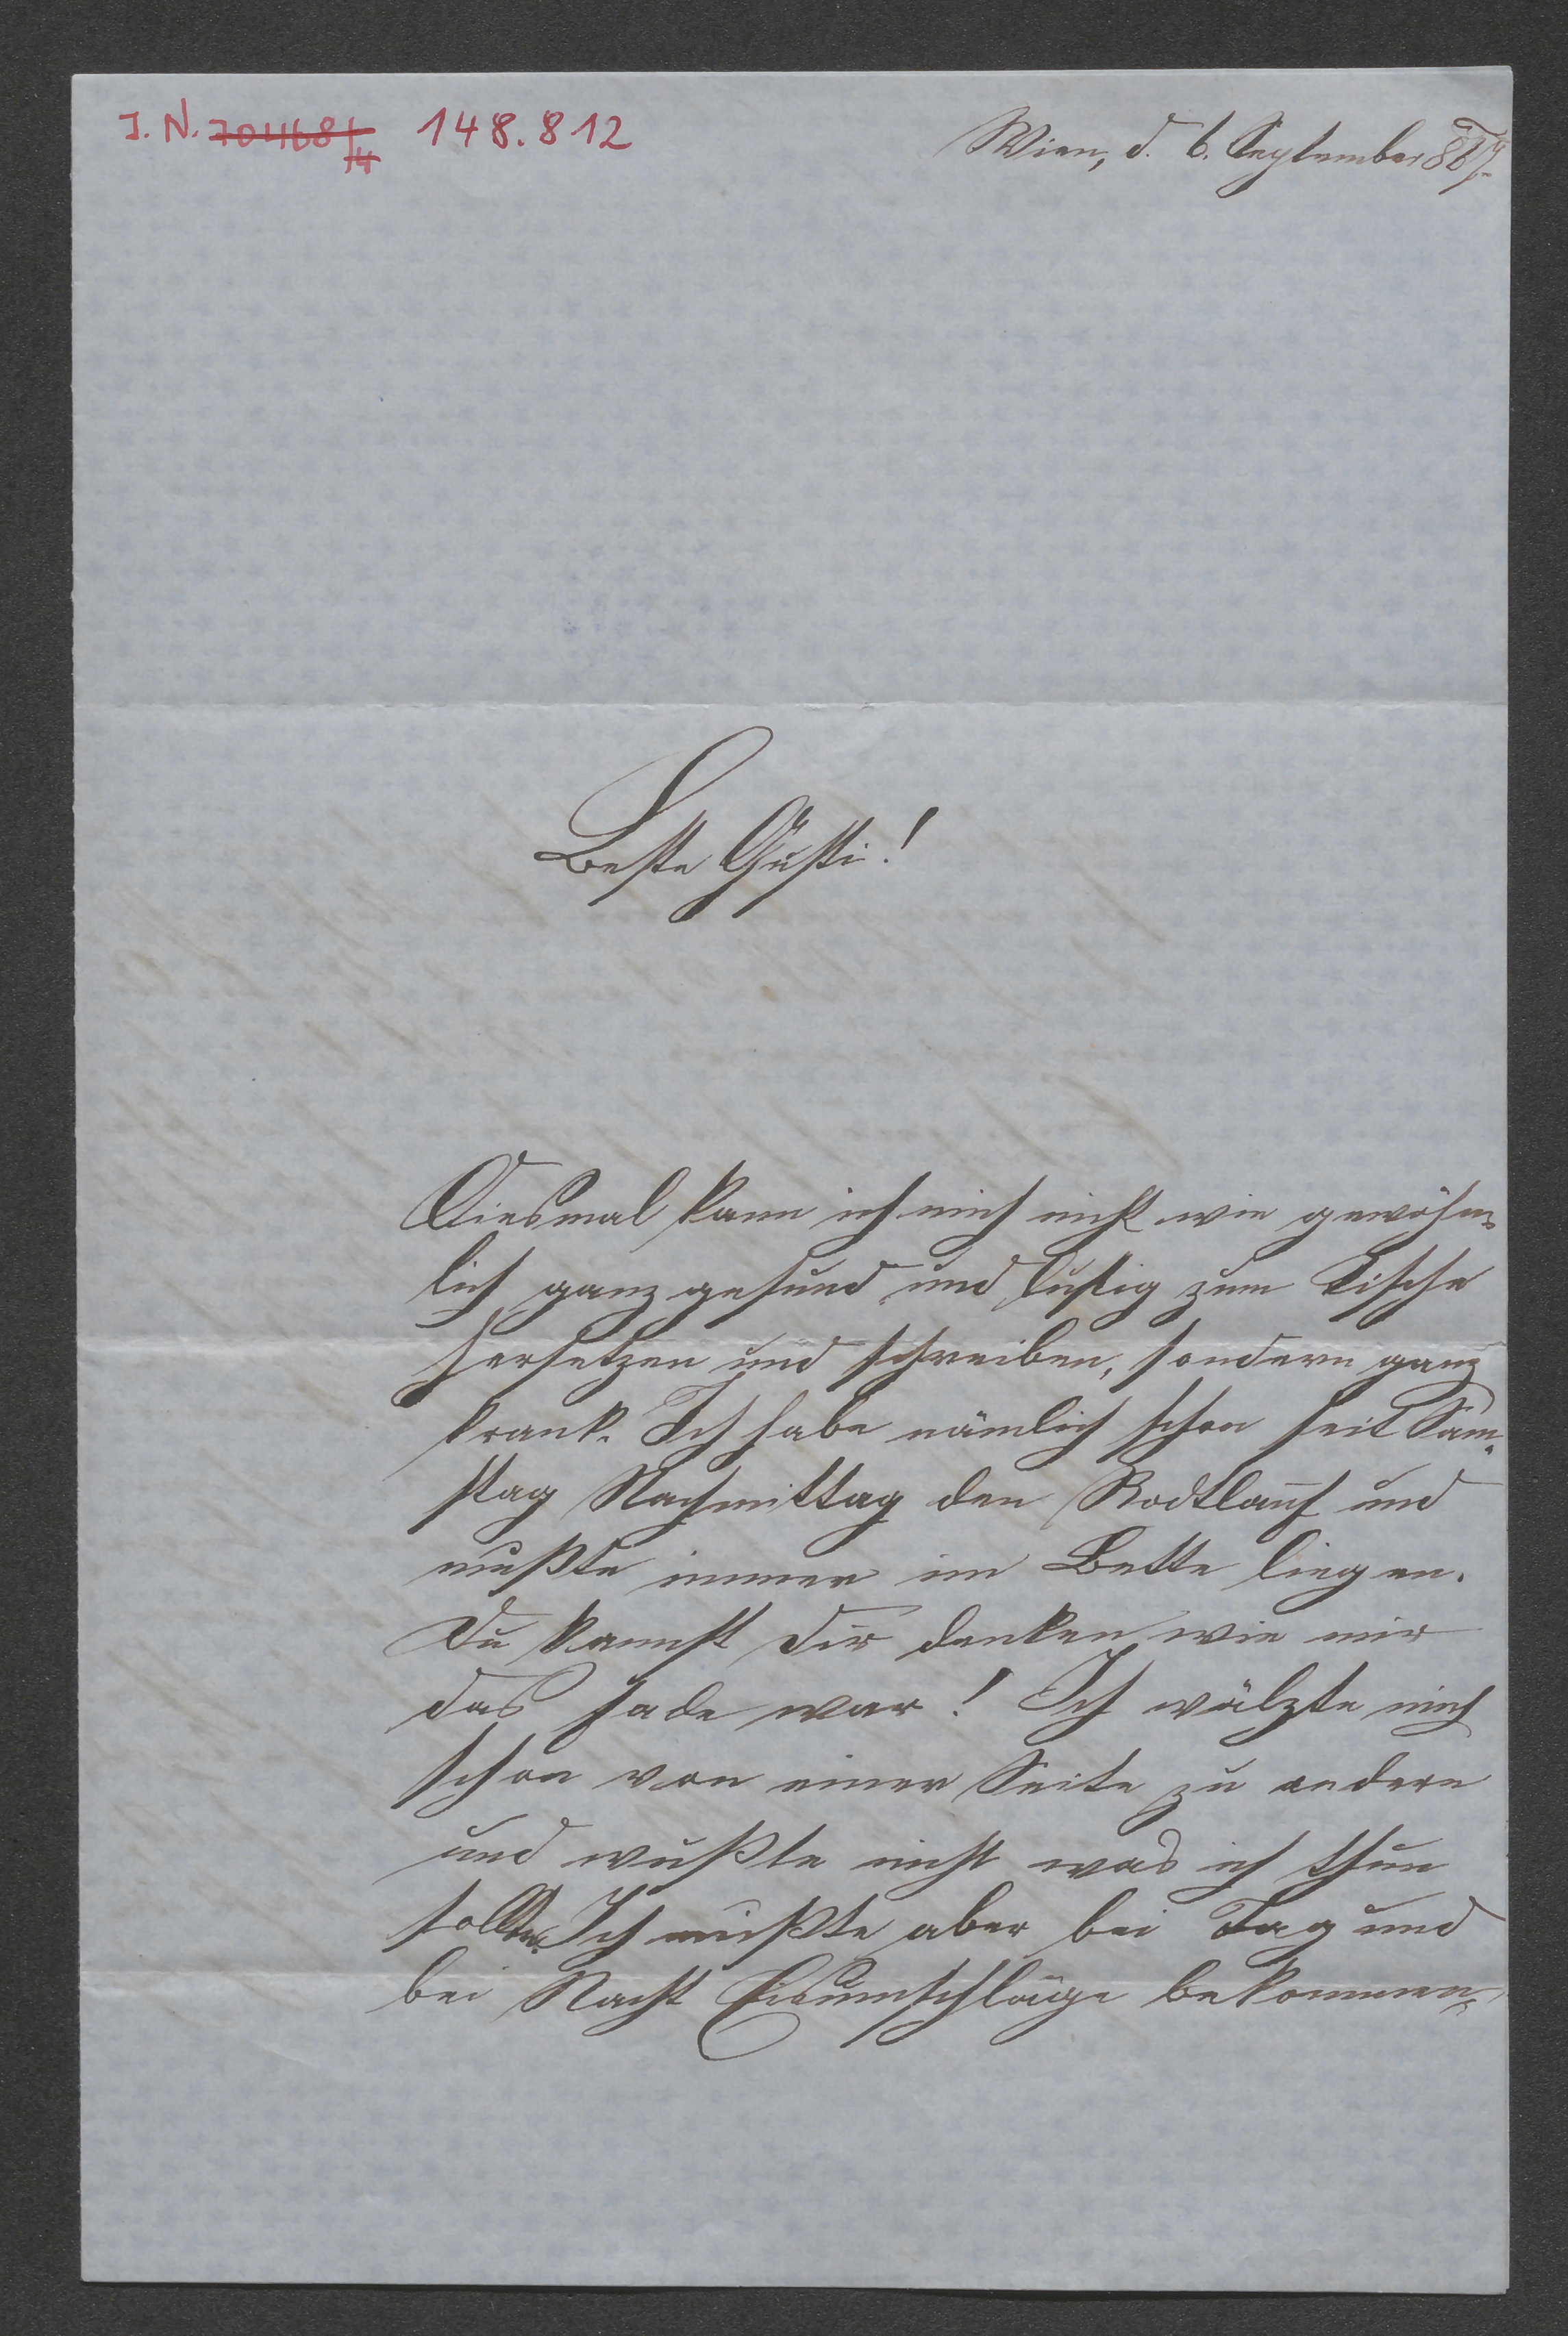 J. N. 70468/14 148.812
Wien, d. 6. September 867.
Beste Gusti!
Diesmal kann ich mich nicht wie gewöhn-
lich ganz gesund und lustig zum Tische
hersetzen und schreiben, sondern ganz
krank. Ich habe nämlich schon seit Sam-
stag Nachmittag den Rodtlauf und
mußte immer im Bette liegen.
Du kannst dir denken wie mir
das fade war! Ich wälzte mich
schon von einer Seite zu andern
und wußte nicht was ich thun
sollte. Ich mußte aber bei Tag und
bei Nacht Eisumschläge bekommen,